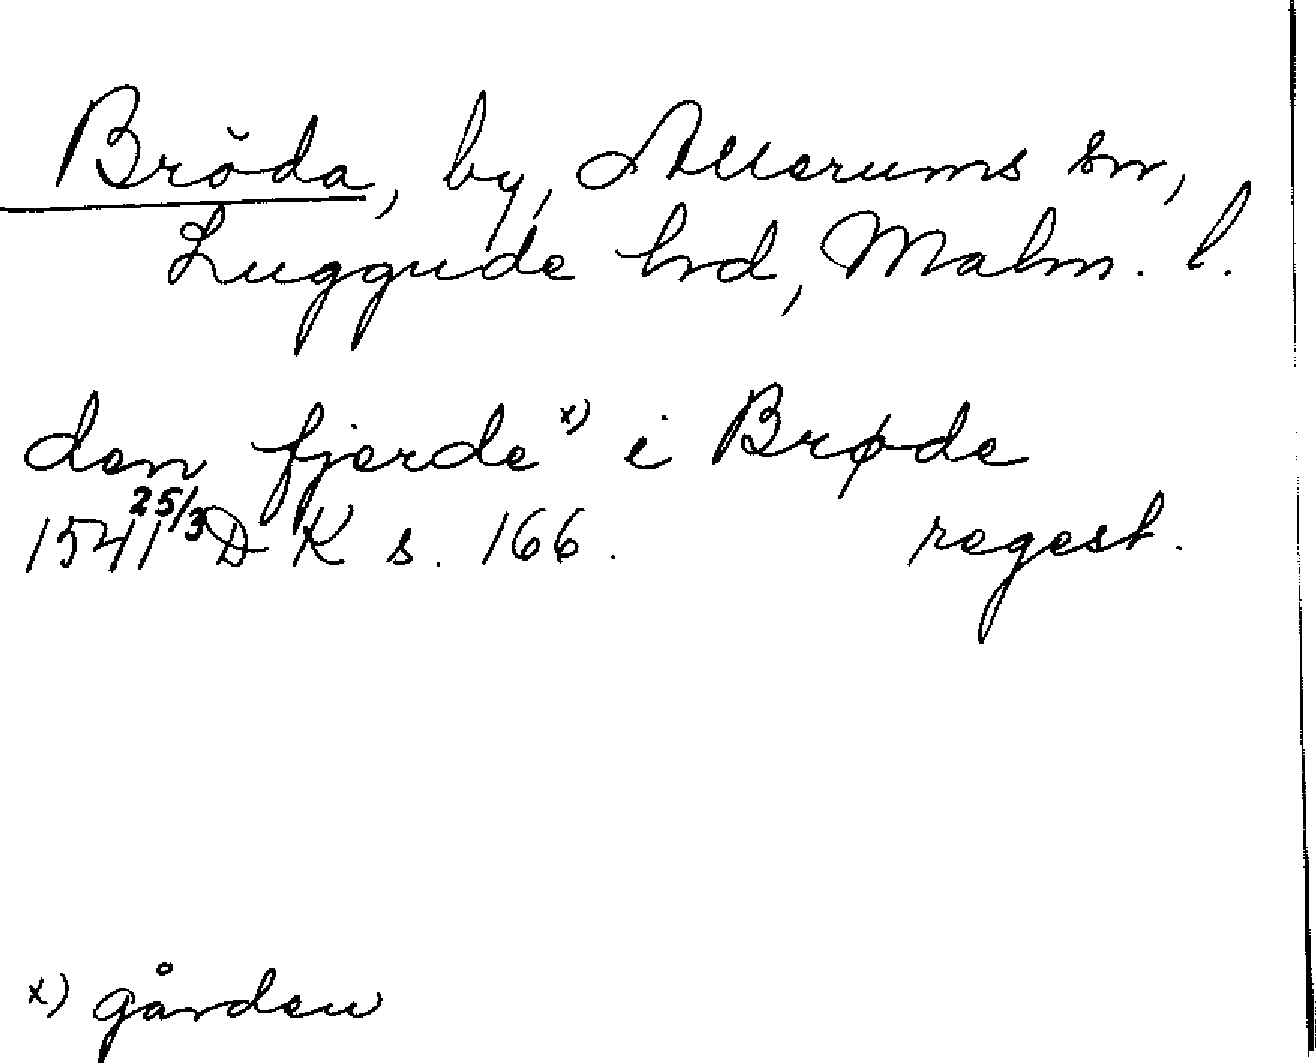 Bröda, by, Allerums sn,
Luggude hrd, Malm. l.
den fjerde x) i Brøde
1541 25/3 D K s. 166. regest.
x) gården